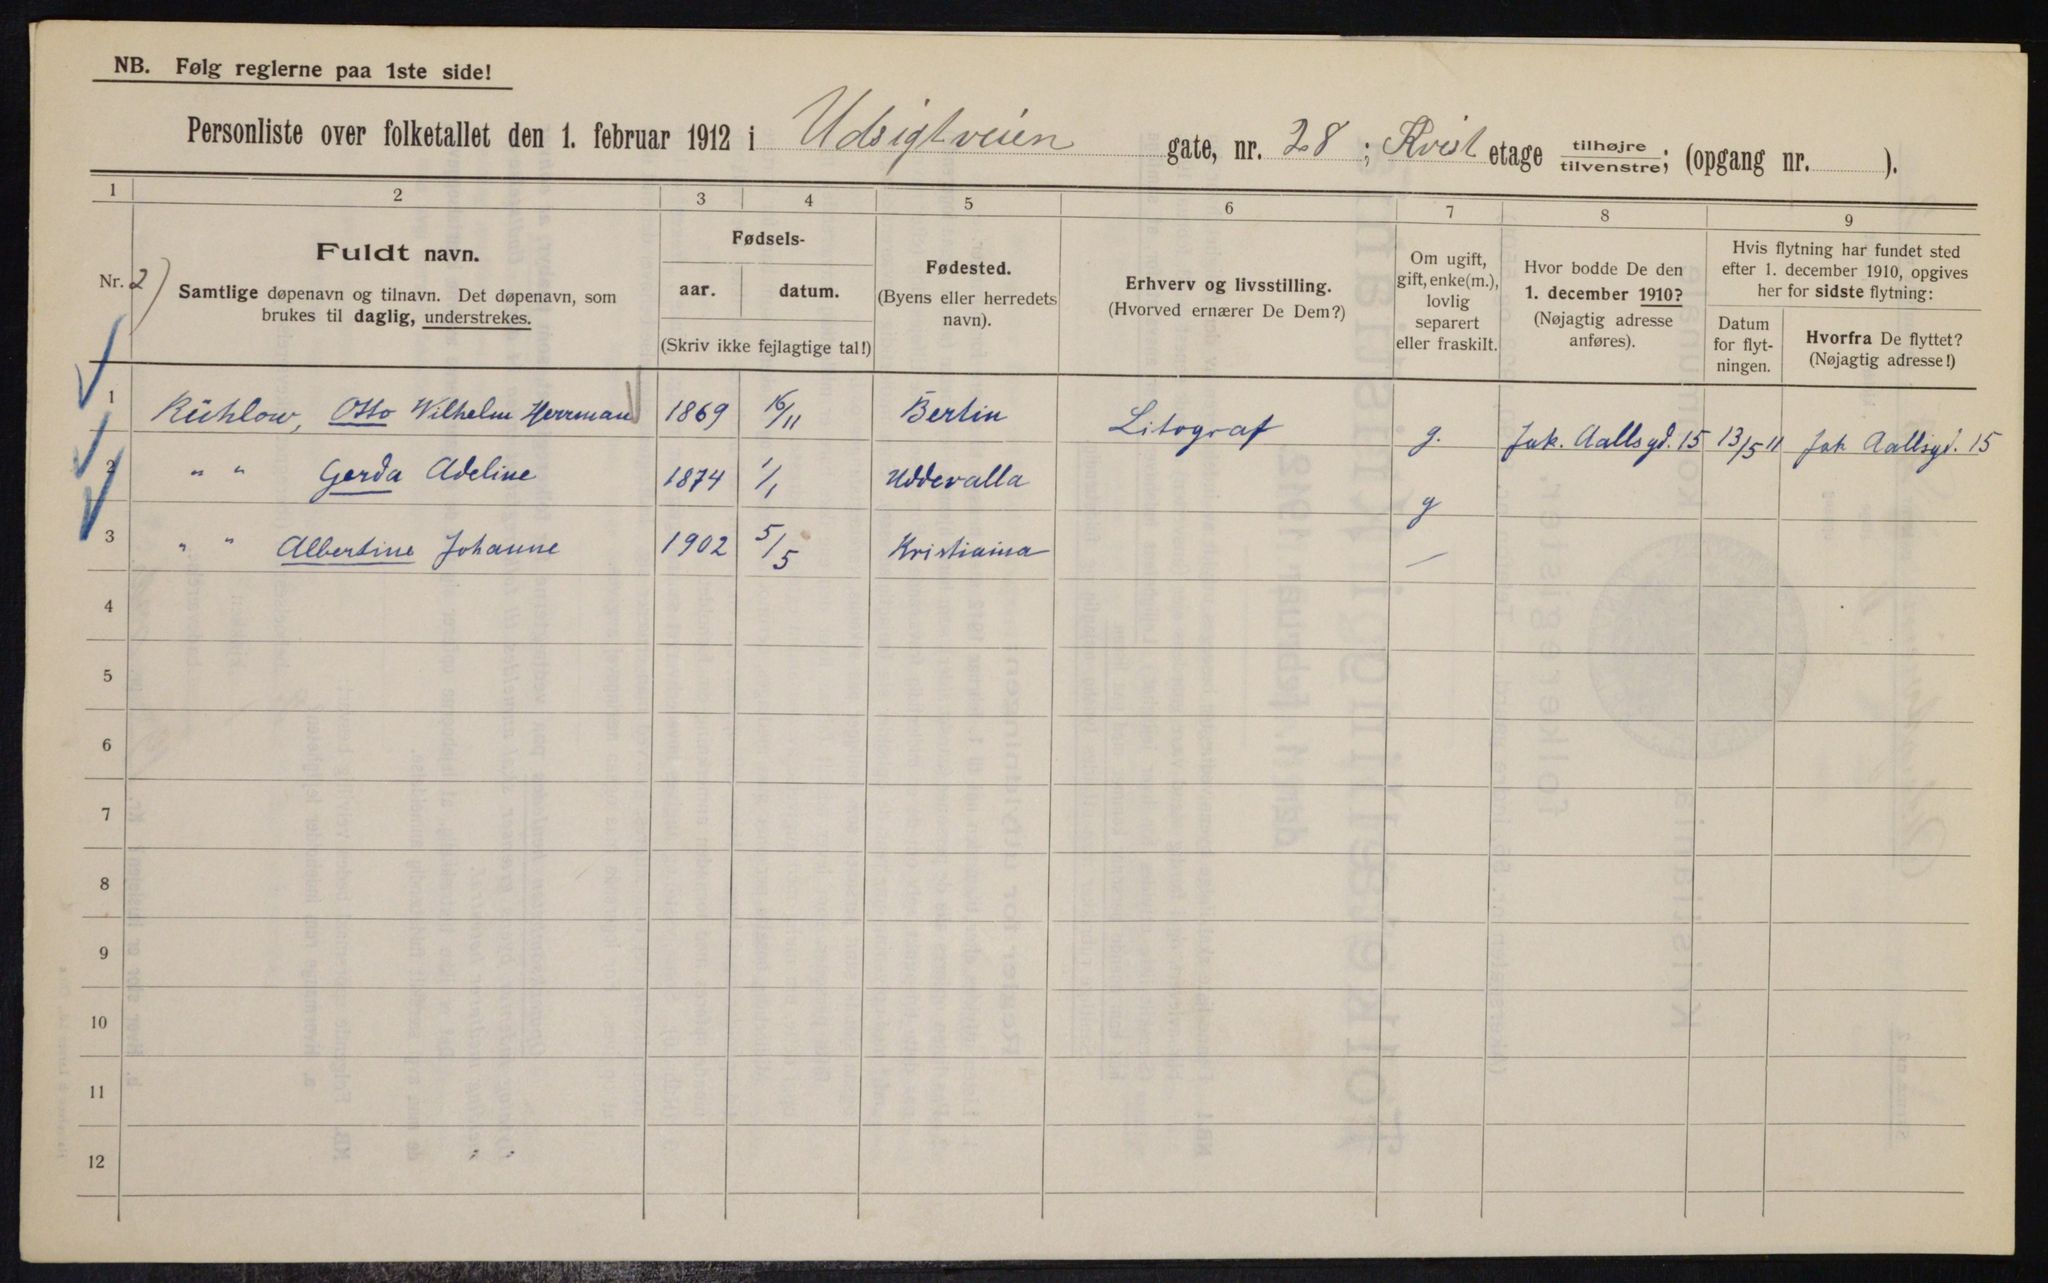 NB. Følg reglerne paa 1ste side!
Personliste over folketallet den 1. februar 1912 i Udsigtveien gate, nr. 28 ; Kvist etage tilhøjre/tilvenstre; (opgang nr. ).
1 2 3 4 5 6 7 8 9
Nr. 2)
Fuldt navn.
Samtlige døpenavn og tilnavn. Det døpenavn, som
brukes til daglig, understrekes.
Fødsels-
aar. datum.
(Skriv ikke fejlagtige tal!)
Fødested.
(Byens eller herredets
navn).
Erhverv og livsstilling.
(Hvorved ernærer De Dem?)
Om ugift,
gift, enke(m.),
lovlig
separert
eller fraskilt.
Hvor bodde De den
1. december 1910?
(Nøjagtig adresse
anføres).
Hvis flytning har fundet sted
efter 1. december 1910, opgives
her for sidste flytning:
Datum
for flyt-
ningen.
Hvorfra De flyttet?
(Nøjagtig adresse!)
1 Rühlow, Otto Wilhelm Herrman 1869 16/11 Berlin Litograf g. Jak. Aallsgd. 15 13/5 11 Jak Aallsgd. 15
2 " " Gerda Adeline 1874 1/1 Uddevalla g
3 " " Albertine Johanne 1902 5/5 Kristiania —
4
5
6
7
8
9
10
11
12